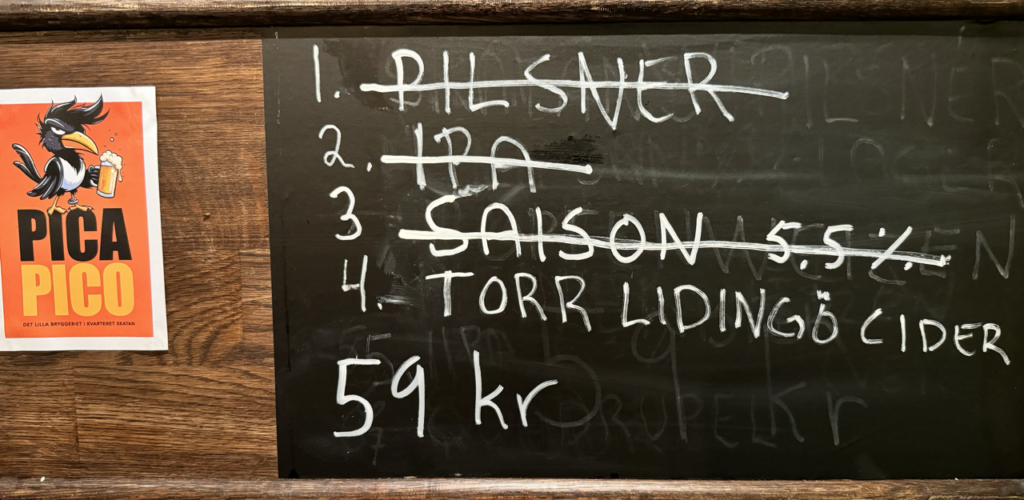 PICA
PICO
DET LILLA BRYGGERIET I KVARTERET SKATAN
1. PILSNER
2. IPA
3 SAISON 5.5%
4. TORR LIDINGÖ CIDER
59 kr